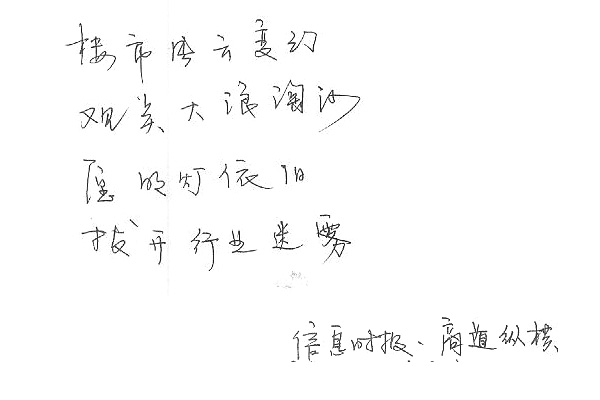 楼市风云变幻
观炎大浪淘沙
愿明灯依旧
拨开行业迷雾
信息时报·商道纵横